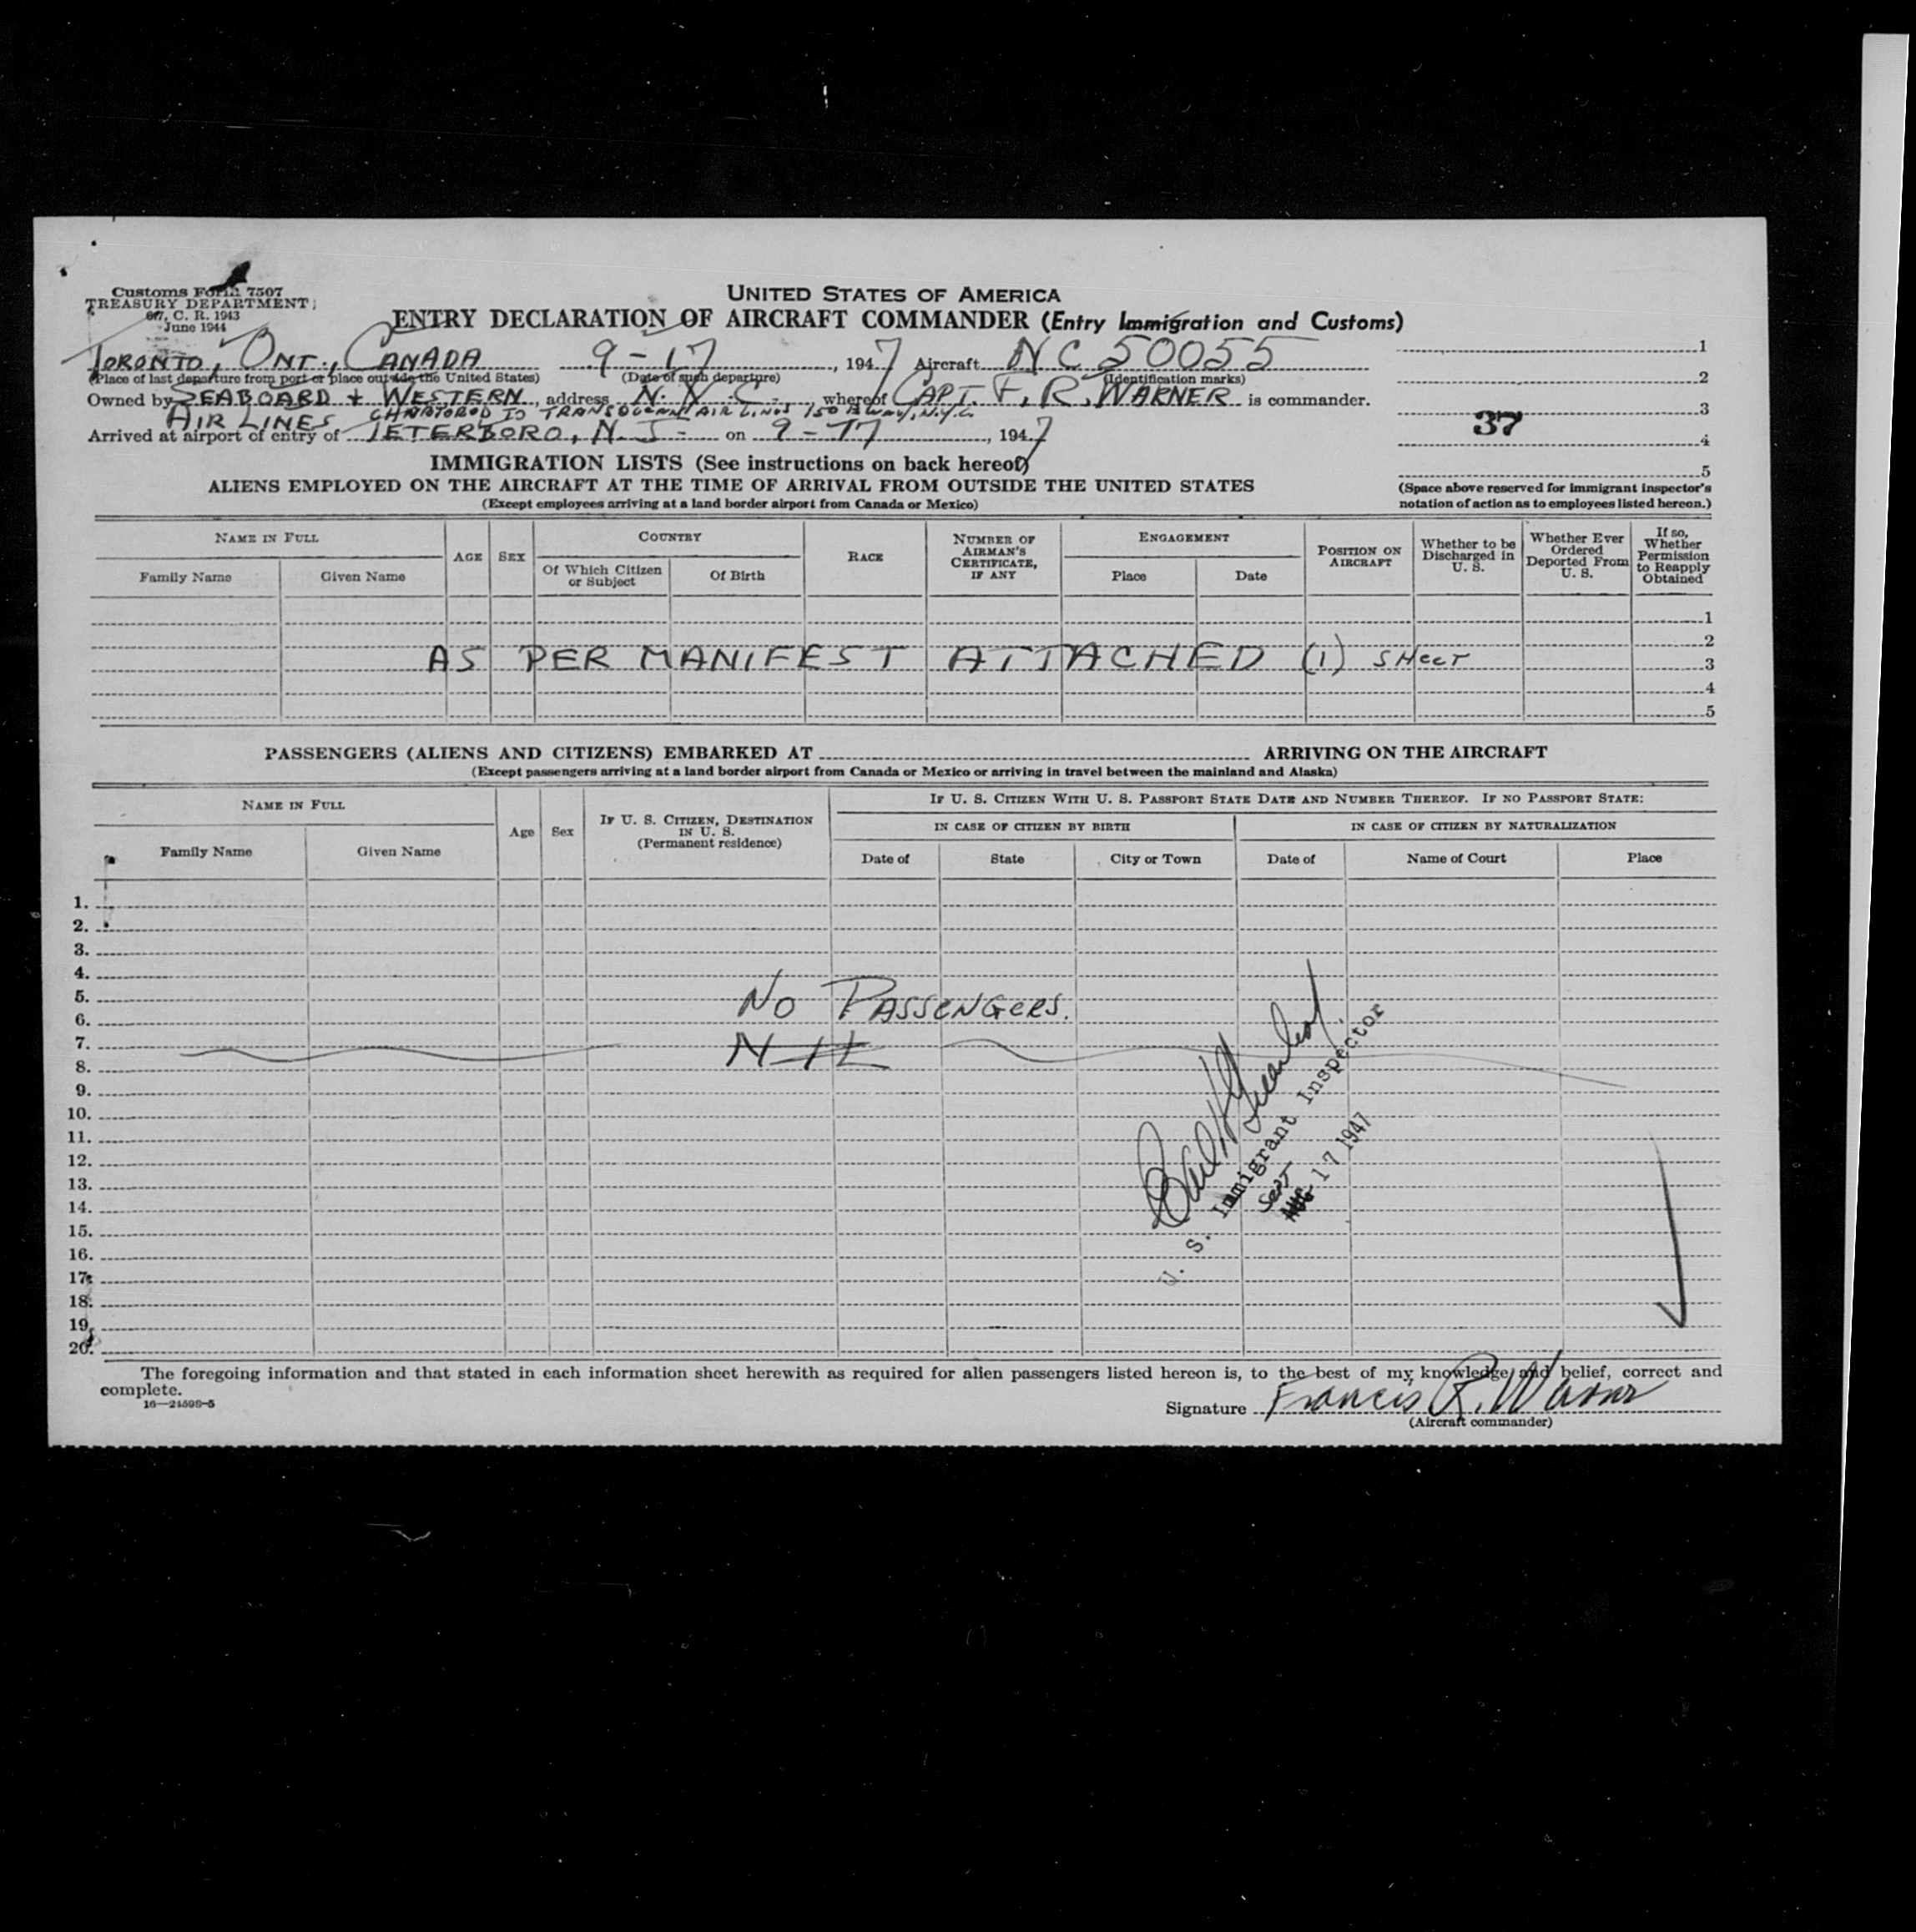 Customs Form 7507
TREASURY DEPARTMENT
C. R. 1943
June 1944
UNITED STATES OF AMERICA
ENTRY DECLARATION OF AIRCRAFT COMMANDER (Entry Immigration and Customs)
TORONTO, ONT., CANADA 9-17, 1947 Aircraft NC 50055
(Place of last departure from port or place outside the United States) (Date of such departure) (Identification marks)
Owned by SEABOARD & WESTERN, address N. Y. C., whereof CAPT. F. R. WARNER is commander.
AIR LINES CHARTERED TO TRANSOCEAN AIR LINES 150 BWAY, N.Y.C.
Arrived at airport of entry of TETERBORO, N. J. on 9-17, 1947
1
2
3
37
4
5
(Space above reserved for immigrant inspector's
notation of action as to employees listed hereon.)
IMMIGRATION LISTS (See instructions on back hereof)
ALIENS EMPLOYED ON THE AIRCRAFT AT THE TIME OF ARRIVAL FROM OUTSIDE THE UNITED STATES
(Except employees arriving at a land border airport from Canada or Mexico)
NAME IN FULL
Family Name
Given Name
AGE
SEX
COUNTRY
Of Which Citizen
or Subject
Of Birth
RACE
NUMBER OF
AIRMAN'S
CERTIFICATE,
IF ANY
ENGAGEMENT
Place
Date
POSITION ON
AIRCRAFT
Whether to be
Discharged in
U. S.
Whether Ever
Ordered
Deported From
U. S.
If so,
Whether
Permission
to Reapply
Obtained
1
2
AS PER MANIFEST ATTACHED (1) SHEET
3
4
5
PASSENGERS (ALIENS AND CITIZENS) EMBARKED AT ARRIVING ON THE AIRCRAFT
(Except passengers arriving at a land border airport from Canada or Mexico or arriving in travel between the mainland and Alaska)
NAME IN FULL
Family Name
Given Name
Age
Sex
IF U. S. CITIZEN, DESTINATION
IN U. S.
(Permanent residence)
IF U. S. CITIZEN WITH U. S. PASSPORT STATE DATE AND NUMBER THEREOF. IF NO PASSPORT STATE:
IN CASE OF CITIZEN BY BIRTH
Date of
State
City or Town
IN CASE OF CITIZEN BY NATURALIZATION
Date of
Name of Court
Place
1.
2.
3.
4.
5.
NO PASSENGERS.
6.
7.
NIL
8.
9.
10.
11.
12.
13.
14.
15.
16.
17.
18.
19.
20.
U. S. Immigrant Inspector
SEPT
AUG 17 1947
The foregoing information and that stated in each information sheet herewith as required for alien passengers listed hereon is, to the best of my knowledge and belief, correct and
complete.
16—24598-5
Signature Francis R. Warner
(Aircraft commander)